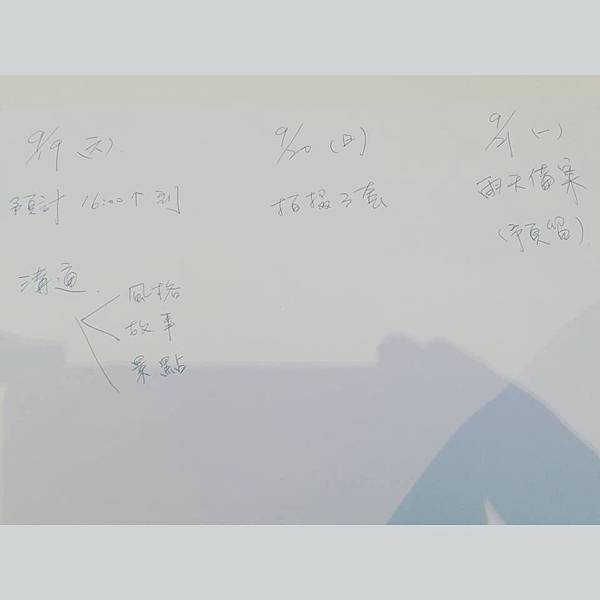 9/19 (六)
預計 16:00 到
溝通
風格
故事
景點
9/20 (日)
拍攝3套
9/21 (一)
雨天備案
(預留)